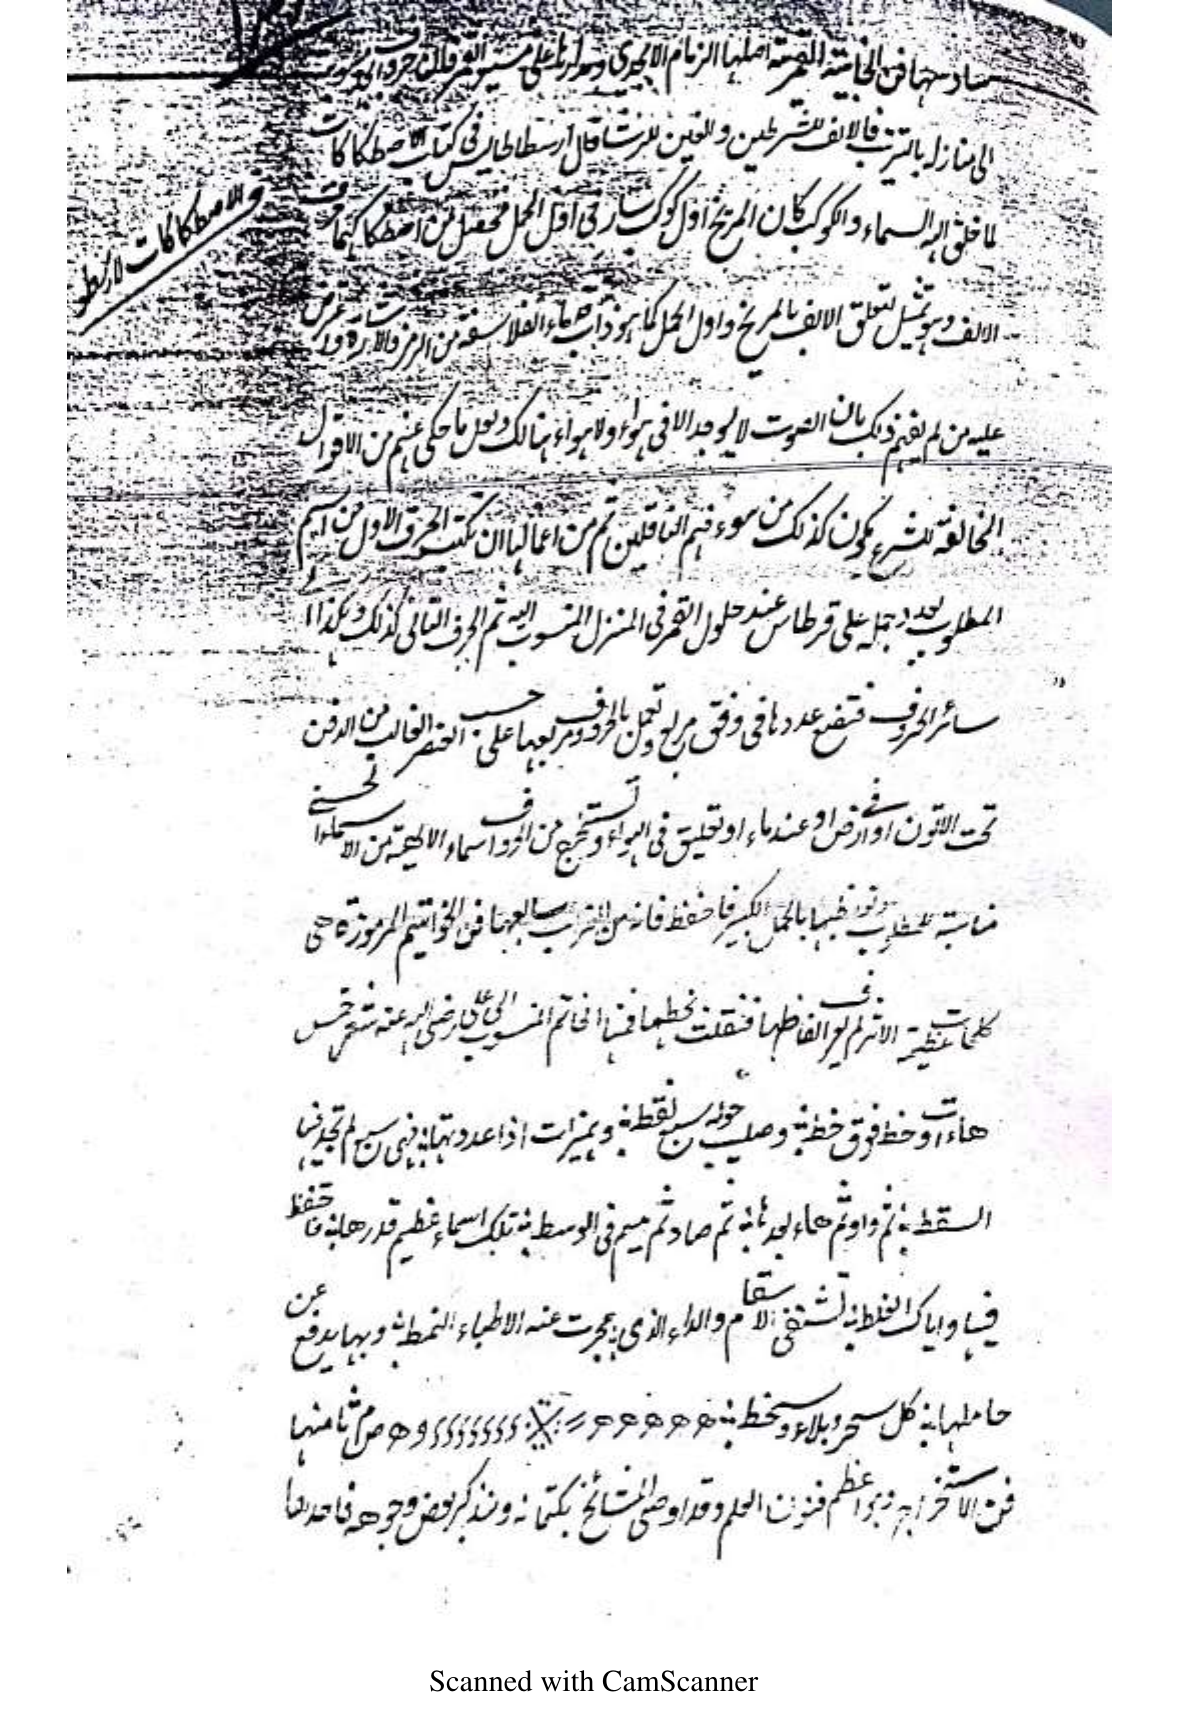 سادسها فن الخافية القمرية اصلها الزمام الابجدي ومدارها على مسير القمر فان حروف ابجد
الى منازله بالترتيب فالالف للشرطين والغين للرشا قال ارسطاطاليس فى كتاب الاصطكاكات
لما خلق الله السماء والكواكب كان المريخ اول كوكب سار فى اول الحمل فحصل من اصطكاكهما حرف
الالف وهو تمثيل لتعلق الالف بالمريخ واول الحمل كما هو دأب قدماء الفلاسفة من الرمز والاشارة
عليه من لم يفهم ذلك بان الصوت لا يوجد الا فى هواء ولا هواء هنالك ولعل ما حكى عنهم من الاقوال
المخالفة للشرع يكون كذلك من سوء فهم الناقلين ثم من اعمالها ان تكتب الحرف الاول من اسم
المطلوب بعدد جمله على قرطاس عند حلول القمر فى المنزل المنسوب اليه ثم الحرف الثانى كذلك وهكذا الى
سائر الحروف فتضع عددها فى وفق مربع وتعمل بالحروف ومربعها على حسب العنصر الغالب من الدفن
تحت الاتون او فى ارض او عند ماء او تعليق فى الهواء وتستخرج من الحروف اسماء الالهية من الاسماء الحسنى
مناسبة للمطلوب بالجمل الكبير فاحفظ فانه من سابعها فن الخواتيم المرموزة هى
كلمات عظيمة الاثر لم يعرف الفاظها فنقلت بخطها فمنها الخاتم المنسوب الى على رضى الله عنه شعر خمس
هاءات وخط فوق خط وصليب حوله سبع نقط وهمزات اذا عددتها فهى سبع لم تجد فيها
السقط ثم واو ثم هاء بعدها ثم صاد ثم ميم فى الوسط تلك اسماء عظيم قدرها فاحفظ
فيها واياك الغلط تشتفى الاسقام والداء الذى عجزت عنه الاطباء النمط وبها يدفع عن
حاملها كل سحر وبلاء وسخط ه ه ه ه ه ء ء ء ء ء ء ء و ه ص م ثامنها
فن الاستخراج وهو اعظم فنون العلم وقد اوصى المشائخ بكتمانه ونذكر بعض وجوهه فاحدها
ف الاصطكاكات لارسطو
Scanned with CamScanner